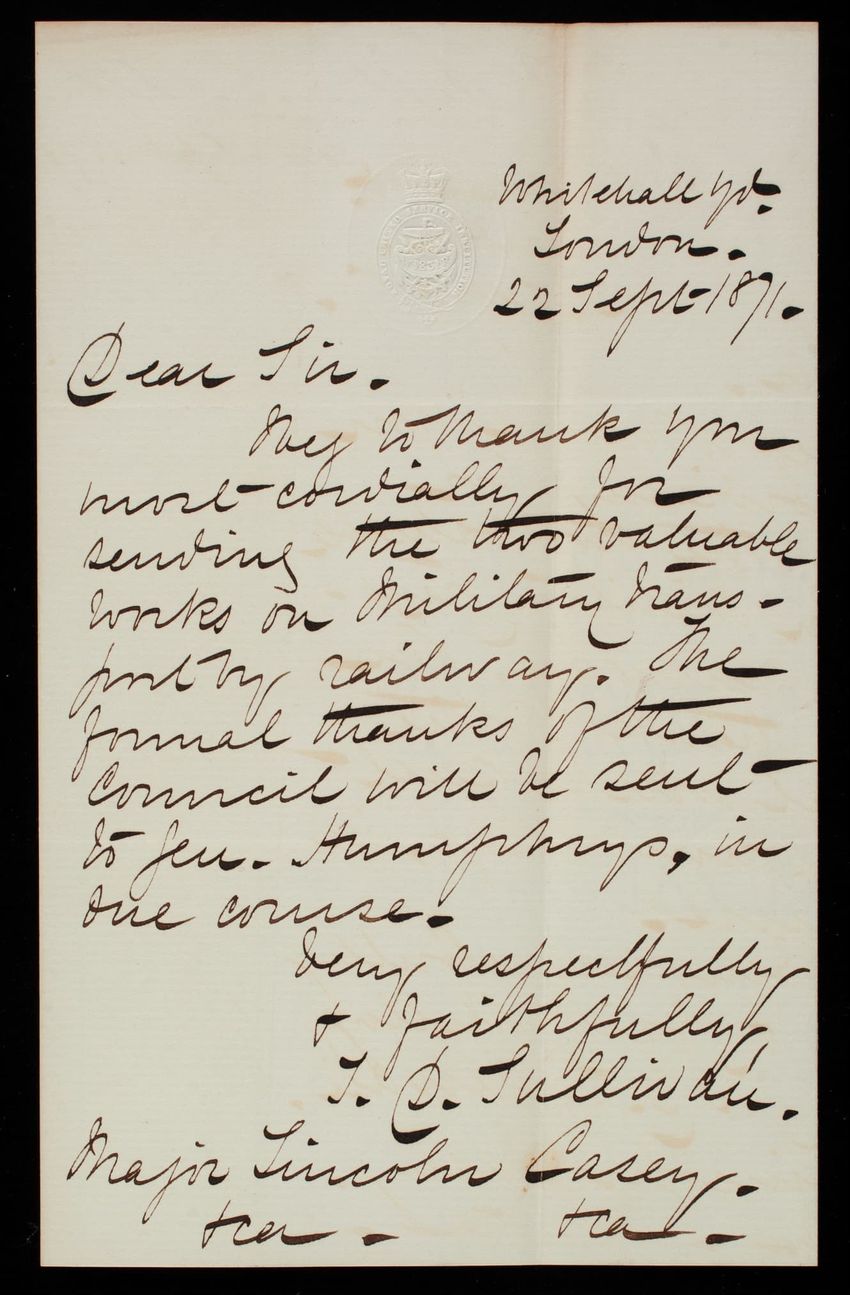 Whitehall Yd.
London.
22 Sept 1871.
Dear Sir.
I beg to thank you
most cordially for
sending the two valuable
works on Military trans-
port by railway. The
formal thanks of the
Council will be sent
to Gen. Humphrys, in
due course.
Very respectfully
& faithfully,
T. D. Sullivan.
Major Lincoln Casey.
&ca - &ca -